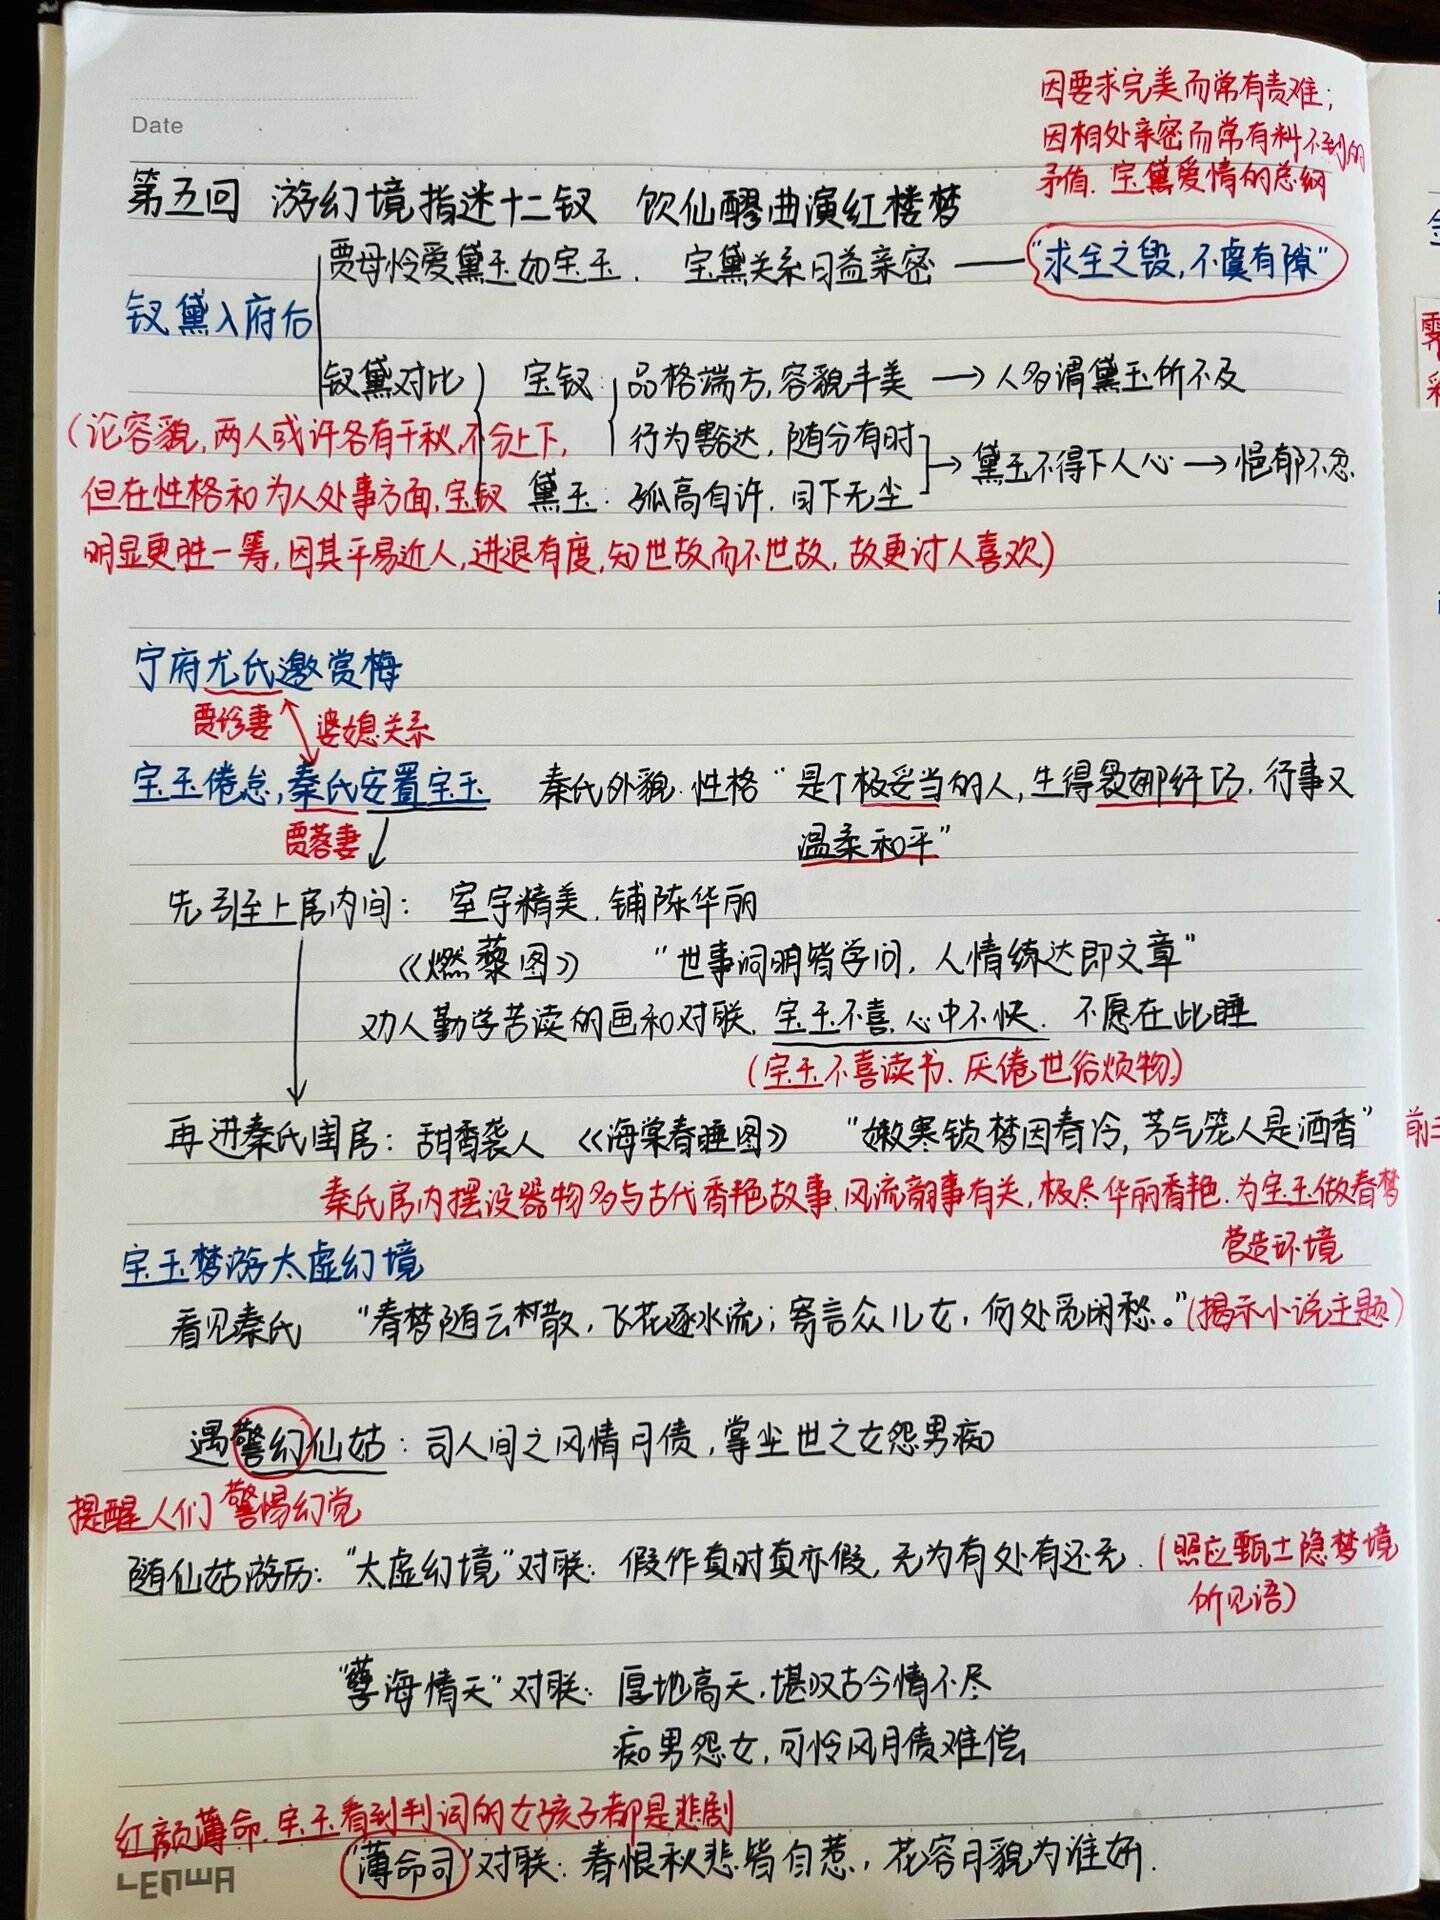 因要求完美而常有责难；
因相处亲密而常有料不到的
矛盾. 宝黛爱情的总纲
Date
第五回 游幻境指迷十二钗 饮仙醪曲演红楼梦
贾母怜爱黛玉如宝玉. 宝黛关系日益亲密 —— "求全之毁，不虞有隙"
钗黛入府后
钗黛对比 宝钗：品格端方，容貌丰美 → 人多谓黛玉所不及
(论容貌，两人或许各有千秋，不分上下，
行为豁达，随分有时 → 黛玉不得下人心 → 悒郁不忿
但在性格和为人处事方面，宝钗
黛玉：孤高自许. 目下无尘
明显更胜一筹，因其平易近人，进退有度，知世故而不世故，故更讨人喜欢)
宁府尤氏邀赏梅
贾珍妻 婆媳关系
宝玉倦怠，秦氏安置宝玉 秦氏外貌. 性格 "是个极妥当的人，生得袅娜纤巧. 行事又
贾蓉妻
温柔和平"
先引至上房内间： 室宇精美. 铺陈华丽
《燃藜图》 "世事洞明皆学问，人情练达即文章"
劝人勤学苦读的画和对联. 宝玉不喜. 心中不快. 不愿在此睡
(宝玉不喜读书. 厌倦世俗烦物)
再进秦氏闺房：甜香袭人 《海棠春睡图》 "嫩寒锁梦因春冷，芳气笼人是酒香"
秦氏房内摆设器物多与古代香艳故事. 风流韵事有关，极尽华丽香艳. 为宝玉做春梦
营造环境
宝玉梦游太虚幻境
看见秦氏 "春梦随云散，飞花逐水流；寄言众儿女，何处觅闲愁。"(揭示小说主题)
遇警幻仙姑：司人间之风情月债，掌尘世之女怨男痴
提醒人们警惕幻觉
随仙姑游历："太虚幻境"对联：假作真时真亦假，无为有处有还无. (照应甄士隐梦境
所见语)
"孽海情天"对联：厚地高天，堪叹古今情不尽
痴男怨女，可怜风月债难偿
红颜薄命. 宝玉看到判词的女孩子都是悲剧
"薄命司"对联：春恨秋悲皆自惹，花容月貌为谁妍.
LENWA
前三